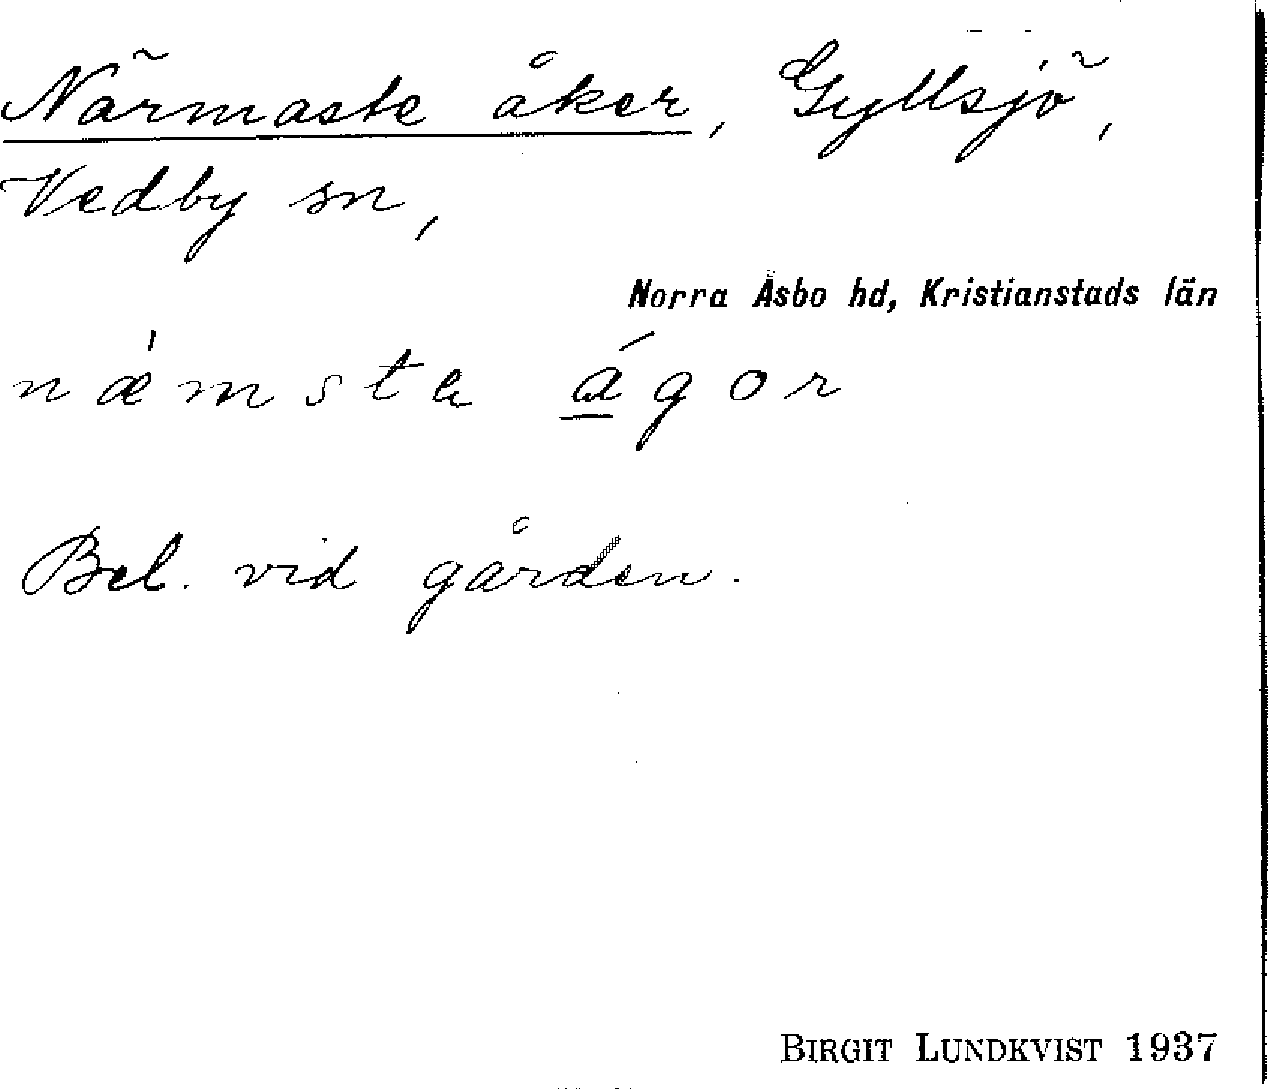 Närmaste åker, Gyllsjö,
Vedby sn,
Norra Åsbo hd, Kristianstads län
næ̍msta á̲gor
Bel. vid gården.
BIRGIT LUNDKVIST 1937